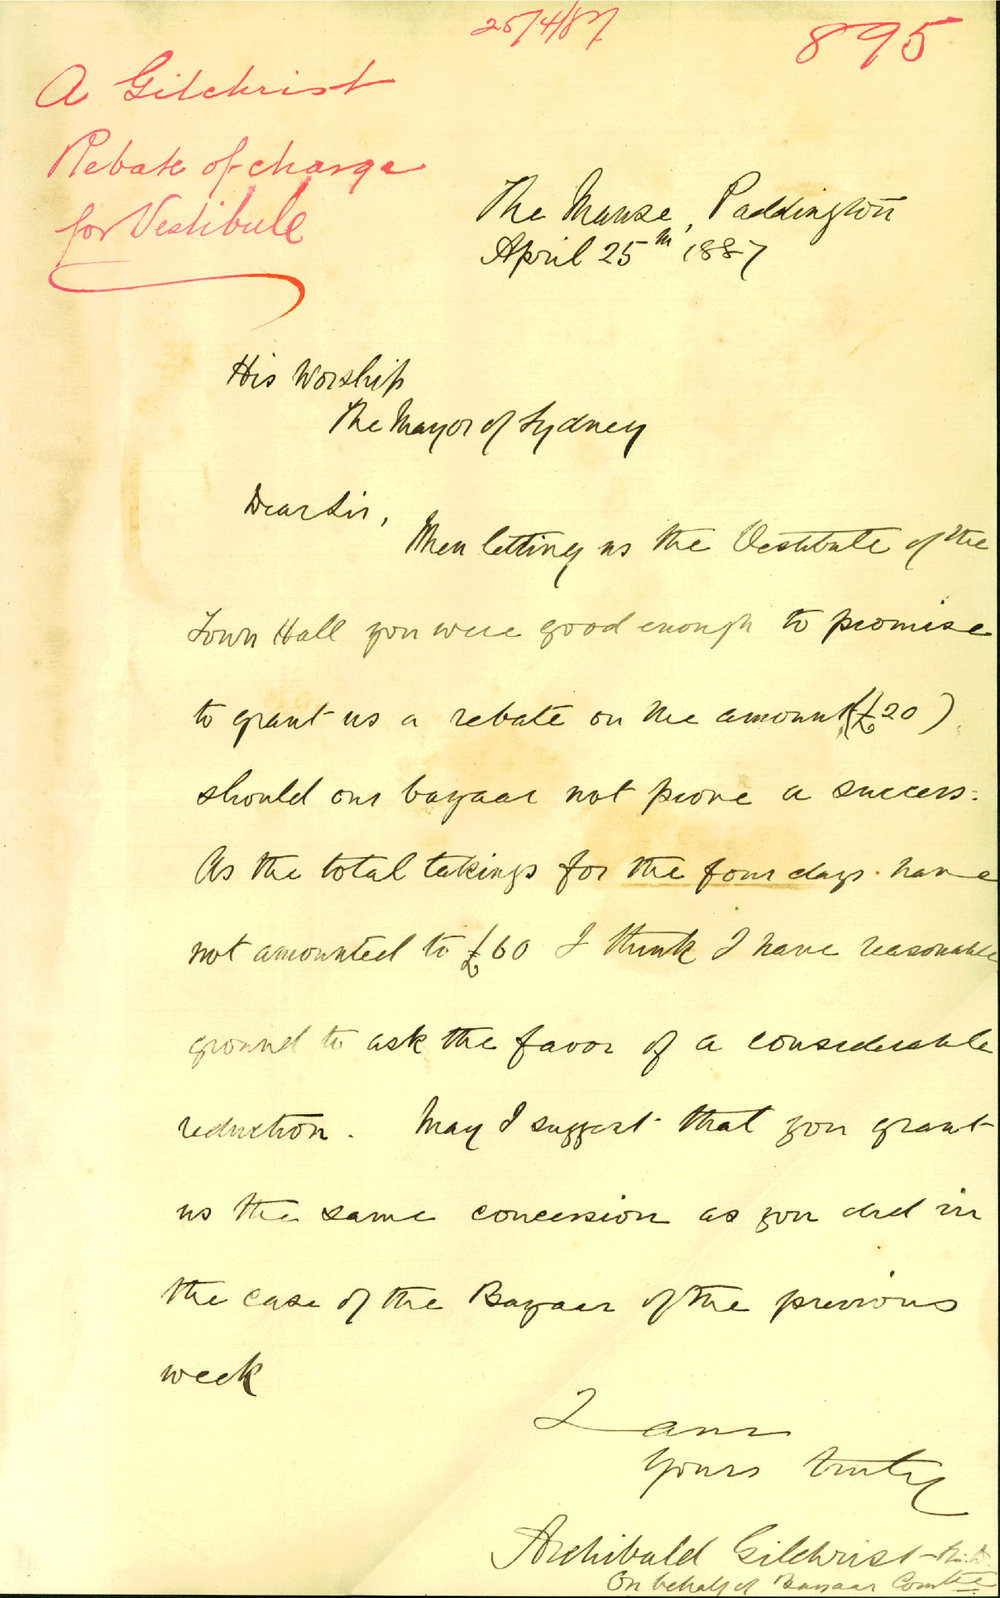 25/4/87
895
A Gilchrist
Rebate of charge
for Vestibule
The Manse, Paddington
April 25th 1887
His Worship
The Mayor of Sydney
Dear Sir,
When letting us the Vestibule of the
Town Hall you were good enough to promise
to grant us a rebate on the amount (£20)
should our bazaar not prove a success.
As the total takings for the four days have
not amounted to £60 I think I have reasonable
ground to ask the favor of a considerable
reduction. May I suggest that you grant
us the same concession as you did in
the case of the Bazaar of the previous
week
I am
Yours truly
Archibald Gilchrist
On behalf of Bazaar Comtee